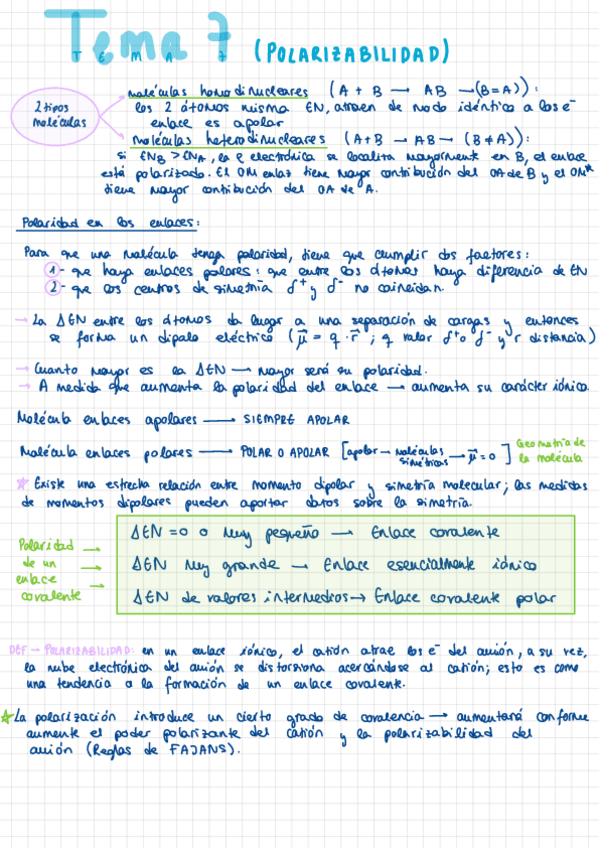 Tema 7 (POLARIZABILIDAD)
TEMA 7
2 tipos
moléculas
moléculas homodinucleares (A + B → AB → (B=A)):
los 2 átomos misma EN, atraen de modo idéntico a los e⁻
enlace es apolar
moléculas heterodinucleares (A+B → AB → (B≠A)):
si ENB > ENA, la ρ electrónica se localiza mayormente en B, el enlace
está polarizado. El OM enlaz tiene mayor contribución del OA de B y el OM*
tiene mayor contribución del OA de A.
Polaridad en los enlaces:
Para que una molécula tenga polaridad, tiene que cumplir dos factores:
1- que haya enlaces polares: que entre los átomos haya diferencia de EN
2- que los centros de simetría δ⁺ y δ⁻ no coincidan.
→ La ΔEN entre los átomos da lugar a una separación de cargas y entonces
se forma un dipolo eléctrico (μ⃗ = q · r⃗ ; q valor δ⁺ o δ⁻ y r distancia)
→ Cuanto mayor es la ΔEN → mayor será su polaridad.
→ A medida que aumenta la polaridad del enlace → aumenta su carácter iónico.
Molécula enlaces apolares → SIEMPRE APOLAR
Molécula enlaces polares → POLAR O APOLAR [apolar → moléculas simétricas → μ⃗ = 0] Geometría de
la molécula
☆ Existe una estrecha relación entre momento dipolar y simetría molecular; las medidas
de momentos dipolares pueden aportar datos sobre la simetría.
Polaridad
de un
enlace
covalente
ΔEN = 0 o muy pequeño → Enlace covalente
ΔEN muy grande → Enlace esencialmente iónico
ΔEN de valores intermedios → Enlace covalente polar
DEF → POLARIZABILIDAD: en un enlace iónico, el catión atrae los e⁻ del anión, a su vez,
la nube electrónica del anión se distorsiona acercándose al catión; esto es como
una tendencia a la formación de un enlace covalente.
☆ La polarización introduce un cierto grado de covalencia → aumentará conforme
aumente el poder polarizante del catión y la polarizabilidad del
anión (Reglas de FAJANS).